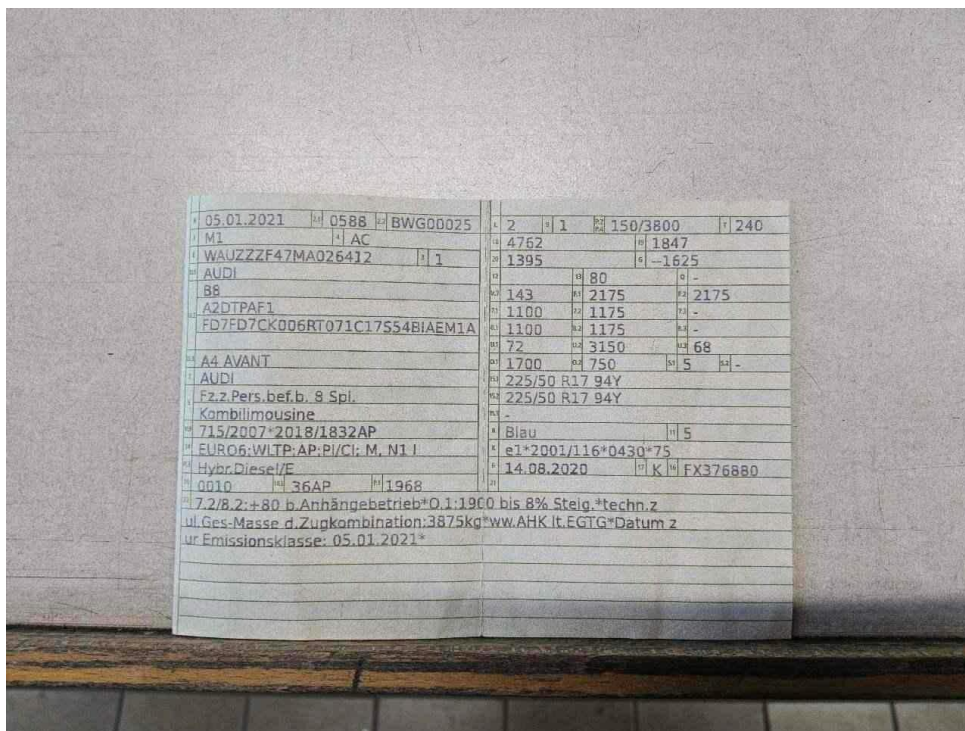 05.01.2021 0588 BWG00025
M1 AC
WAUZZZF47MA026412 1
AUDI
B8
A2DTPAF1
FD7FD7CK006RT071C17S54BIAEM1A
A4 AVANT
AUDI
Fz.z.Pers.bef.b. 8 Spl.
Kombilimousine
715/2007*2018/1832AP
EURO6;WLTP;AP;PI/CI; M, N1 I
Hybr.Diesel/E
0010 36AP 1968
2 1 150/3800 240
4762 1847
1395 —1625
80 -
143 2175 2175
1100 1175 -
1100 1175 -
72 3150 68
1700 750 5 -
225/50 R17 94Y
225/50 R17 94Y
-
Blau 5
e1*2001/116*0430*75
14.08.2020 K FX376880
7.2/8.2:+80 b.Anhängebetrieb*O.1:1900 bis 8% Steig.*techn.z
ul.Ges-Masse d.Zugkombination:3875kg*ww.AHK lt.EGTG*Datum z
ur Emissionsklasse: 05.01.2021*